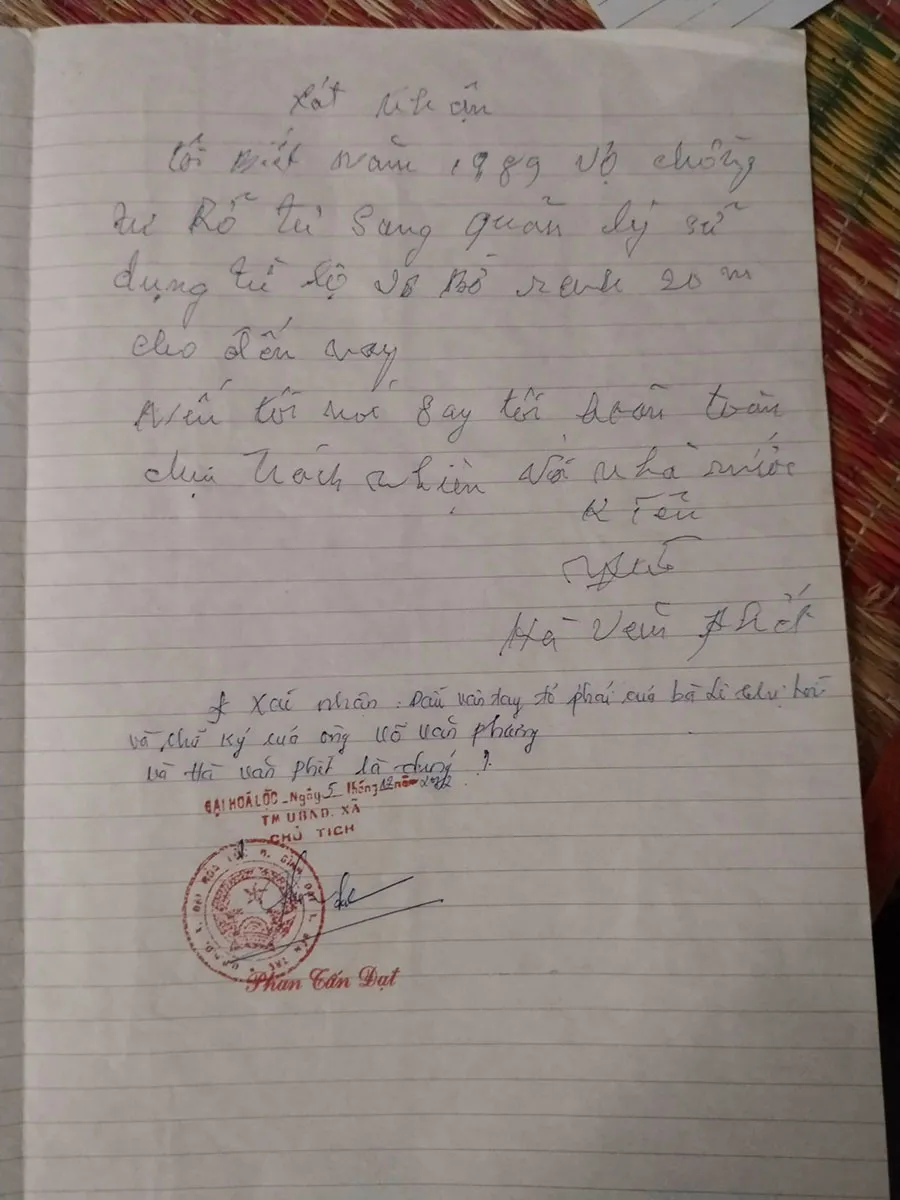 Xát nhận
tôi biết năm 1989 vợ chồng
tư Rỡ từ Sang quản lý sử
dụng từ lộ vô Bờ ranh 20m
cho đến nay
Nếu tôi nói Say tôi hoàn toàn
chịu trách nhiện với nhà nước
K Tên
Hà Văn Phét
* Xác nhân: Dấu vân tay trỏ phải của bà Lê thị
và chữ ký của ông Võ văn pháng
và Hà văn phét là đúng ./.
ĐẠI HOÀ LỘC - Ngày 5 tháng 12 năm 2012
TM UBND. XÃ
CHỦ TỊCH
U.B.N.D. X. ĐẠI HÒA LỘC H. BÌNH ĐẠI T. BẾN TRE
Phan Tấn Đạt